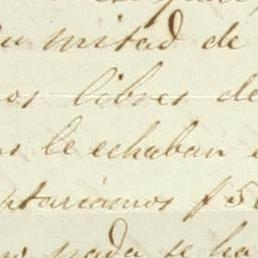 su mitad de
os libres de
le echaban
ptariamos f 50
nada se ha